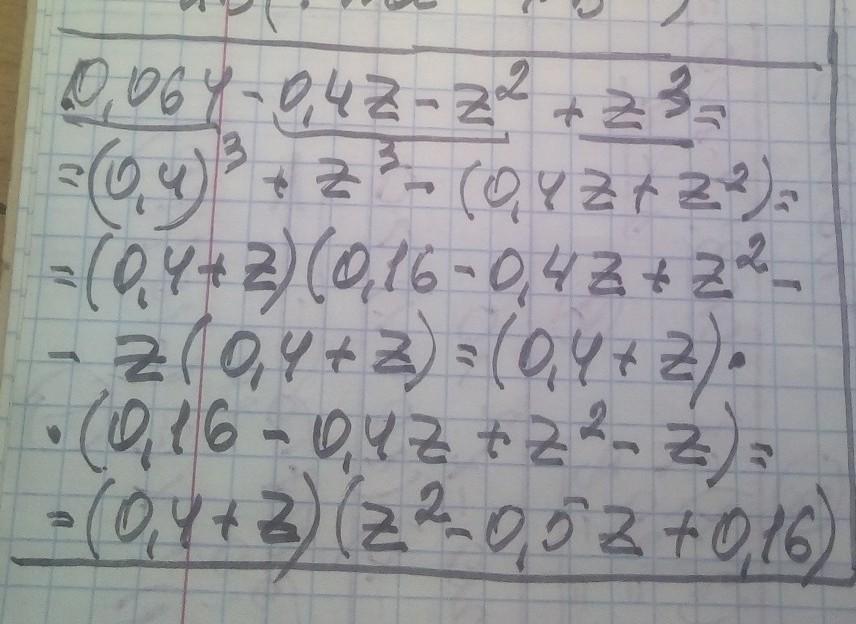 0,064 - 0,4z - z² + z³ =
= (0,4)³ + z³ - (0,4z + z²) =
= (0,4 + z)(0,16 - 0,4z + z² -
- z(0,4 + z) = (0,4 + z) ·
· (0,16 - 0,4z + z² - z) =
= (0,4 + z)(z² - 0,5z + 0,16)